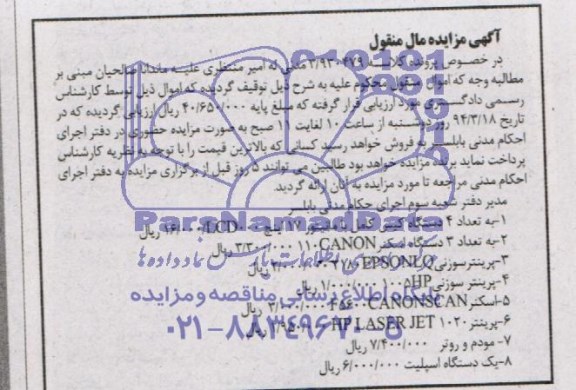 آگهی مزایده مال منقول
در خصوص پرونده کلاسه ۳/۹۳۰۴۷۹ له امیر منتظری علیه ماندانا صالحیان مبنی بر
مطالبه وجه که اموال منقول محکوم علیه به شرح ذیل توقیف گردیده که اموال ذیل توسط کارشناس
رسمی دادگستری مورد ارزیابی قرار گرفته که مبلغ پایه ۴۰/۶۵۰/۰۰۰ ریال ارزیابی گردیده که در
تاریخ ۹۴/۳/۱۸ روز دوشنبه از ساعت ۱۰ لغایت ۱۱ صبح به صورت مزایده حضوری در دفتر اجرای
احکام مدنی بابلسر به فروش خواهد رسید کسانی که بالاترین قیمت را با توجه به نظریه کارشناس
پرداخت نماید برنده مزایده خواهد بود طالبین می توانند ۵ روز قبل از برگزاری مزایده به دفتر اجرای
احکام مدنی مراجعه تا مورد مزایده به آنان ارائه گردد.
مدیر دفتر شعبه سوم اجرای احکام مدنی بابلسر
۱-به تعداد ۴ دستگاه کیس کامل با مانیتور ۱۷ اینچ LCD ۱۶/۰۰۰/۰۰۰ ریال
۲-به تعداد ۳ دستگاه اسکنر CANON۱۱۰ ۳/۳۰۰/۰۰۰ ریال
۳-پرینتر سوزنی EPSONLQ ریال
۴-پرینتر سوزنی HP ۱۰۰۵ ۱/۰۰۰/۰۰۰ ریال
۵-اسکنر CANONSCAN ۵۶۰۰F ریال
۶-پرینتر HP LASER JET ۱۰۲۰ ریال
۷- مودم و روتر ۷/۴۰۰/۰۰۰ ریال
۸-یک دستگاه اسپلیت ۶/۰۰۰/۰۰۰ ریال
ParsNamadData
پایگاه اطلاع رسانی مناقصه و مزایده
۰۲۱-۸۸۳۴۹۶۷۰-۵